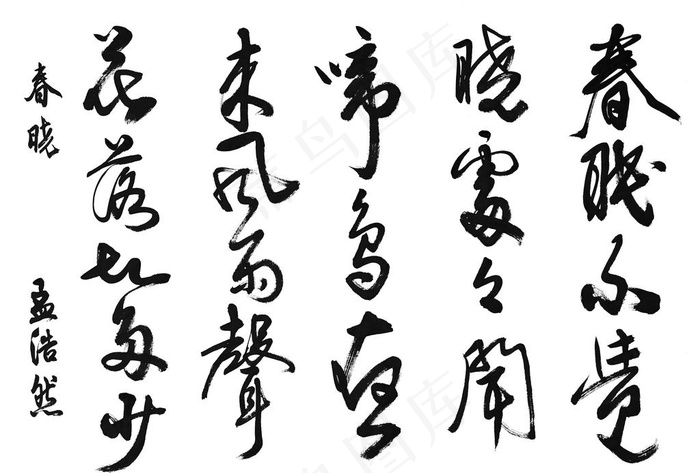 春眠不覺
晓處々聞
啼鳥夜
来風雨聲
花落知多少
春晓
孟浩然